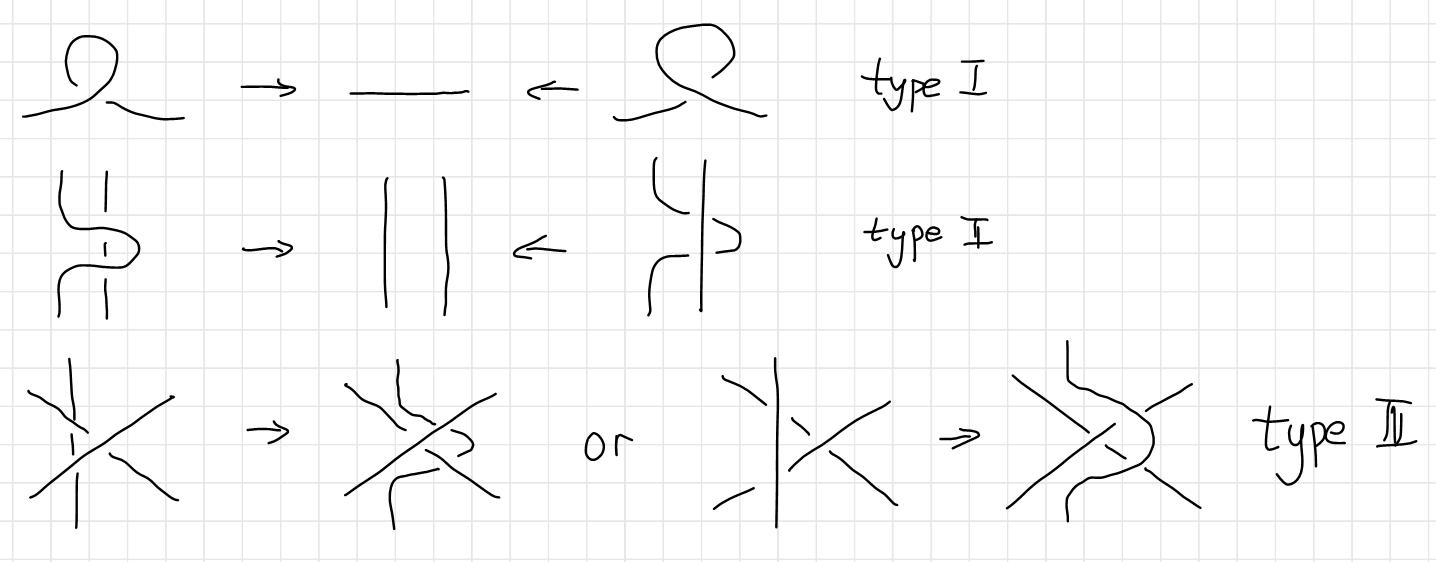 type I
type II
or
type III